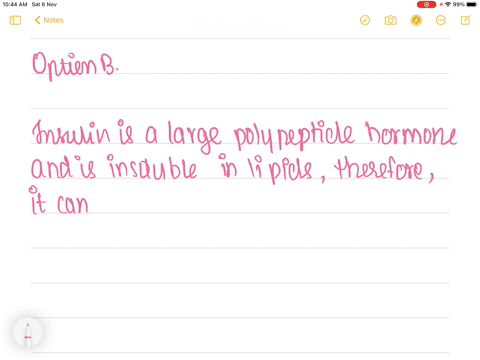 10:44 AM Sat 6 Nov
99%
Notes
Option B.
Insulin is a large polypeptide hormone
and is insouble in lipids, therefore,
it can